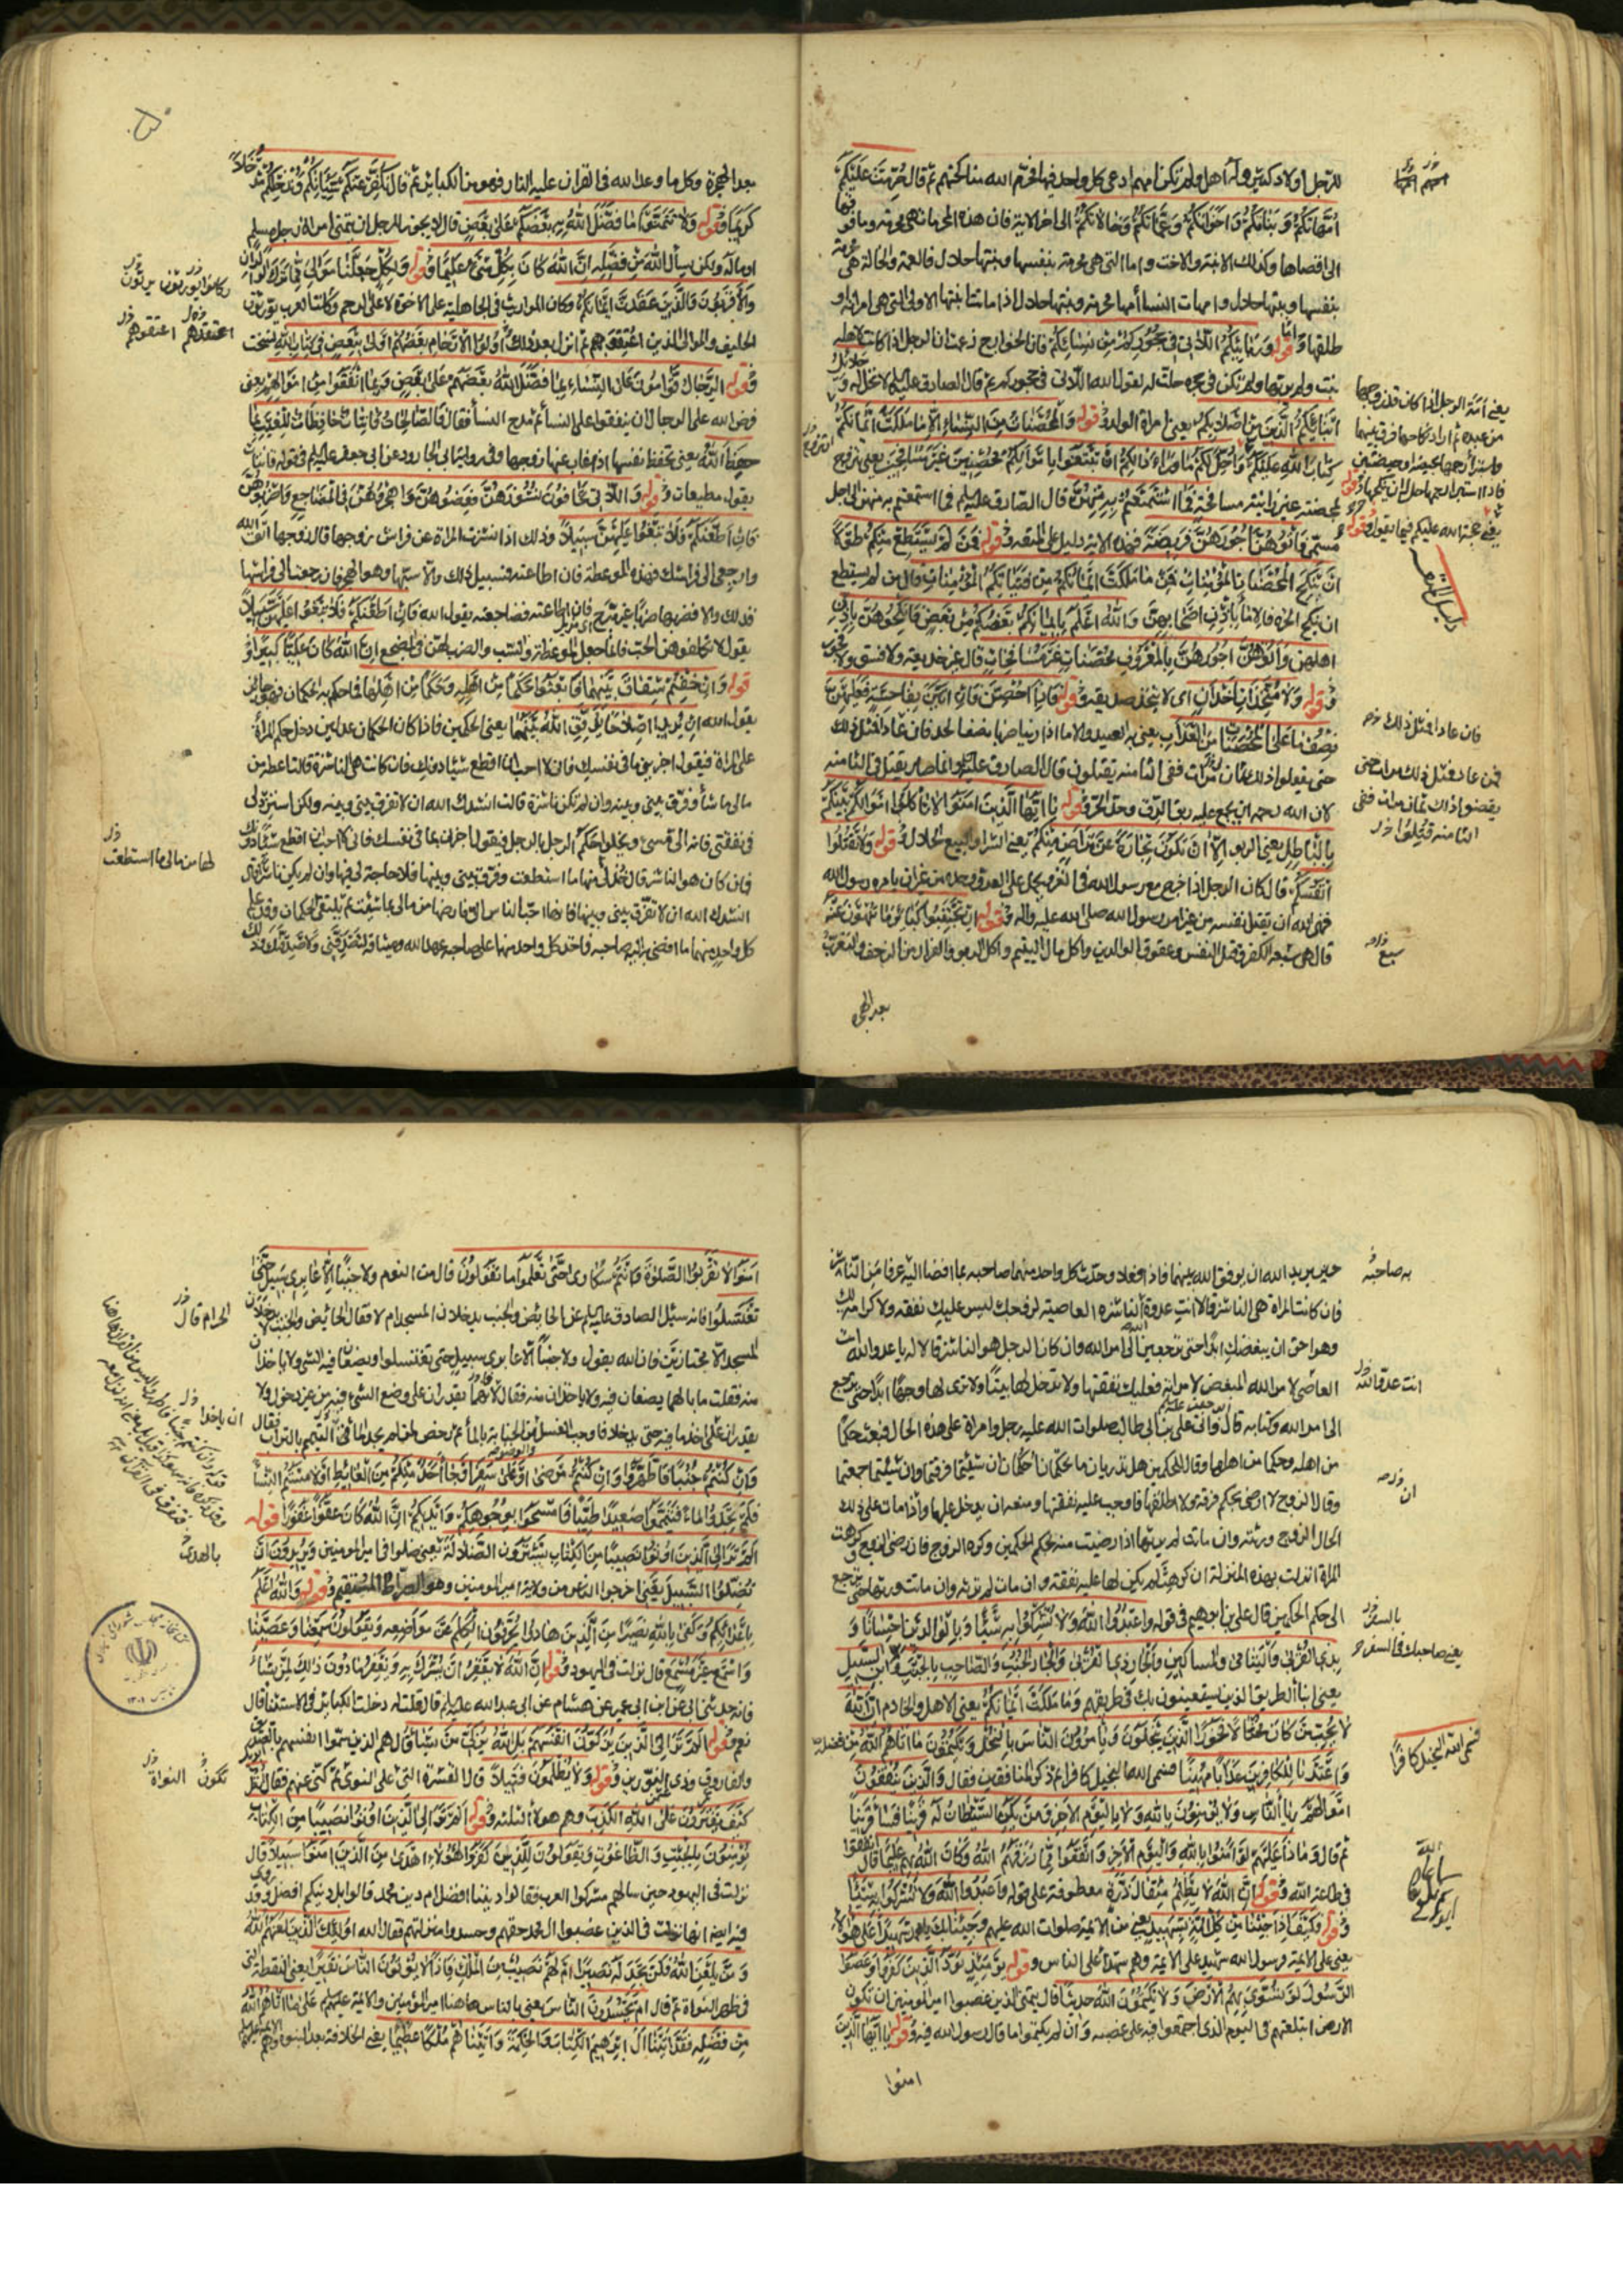 للرجل اولاد كثير وله اهل ولم تكن امهم ادعى كل واحد فيها فحرم الله مناكحتهم ثم قال حُرِّمَتْ عَلَيْكُمْ
اُمَّهَاتُكُمْ وَبَنَاتُكُمْ وَاَخَوَاتُكُمْ وَعَمَّاتُكُمْ وَخَالَاتُكُمْ الى اخر الاية فان هذه المحرمات هى محرمة وما فوقها
الى اقصاها وكذلك الابنة والاخت واما التى هى محرمة بنفسها وبنتها حلال فالعمة والخالة هى محرمة
بنفسها وبنتها حلال وامهات النساء امها محرمة وبنتها حلال اذا ماتت ابنتها الاولى التى هى امرأته او
طلقها واما قوله وَرَبَائِبُكُمُ اللَّاتِى فِى حُجُورِكُمْ مِنْ نِسَائِكُمْ فان الخوارج زعمت ان الرجل اذا كانت لاهله
بنت ولم يربها ولم تكن فى حجره حلت له لقول الله اللاتى فى حجوركم ثم قال الصادق عليه السلم لا تحل له وَحَلَائِلُ
اَبْنَائِكُمُ الَّذِينَ مِنْ اَصْلَابِكُمْ يعنى امرأة الولد وقوله وَالْمُحْصَنَاتُ مِنَ النِّسَاءِ اِلَّا مَا مَلَكَتْ اَيْمَانُكُمْ
كِتَابَ اللهِ عَلَيْكُمْ وَاُحِلَّ لَكُمْ مَا وَرَاءَ ذَلِكُمْ اَنْ تَبْتَغُوا بِاَمْوَالِكُمْ مُحْصِنِينَ غَيْرَ مُسَافِحِينَ يعنى يتزوج
محصنة غير زانية مسافحة فَمَا اسْتَمْتَعْتُمْ بِهِ مِنْهُنَّ قال الصادق عليه السلم فما استمتعتم به منهن الى اجل
مسمى فَآتُوهُنَّ اُجُورَهُنَّ فَرِيضَةً فهذه الاية دليل على المتعة وقوله وَمَنْ لَمْ يَسْتَطِعْ مِنْكُمْ طَوْلًا
اَنْ يَنْكِحَ الْمُحْصَنَاتِ الْمُؤْمِنَاتِ فَمِنْ مَا مَلَكَتْ اَيْمَانُكُمْ مِنْ فَتَيَاتِكُمُ الْمُؤْمِنَاتِ قال من لم يستطع
ان ينكح الحرة فالاماء باذن اصحابهن وَاللهُ اَعْلَمُ بِاِيمَانِكُمْ بَعْضُكُمْ مِنْ بَعْضٍ فَانْكِحُوهُنَّ بِاِذْنِ
اهلهن وَآتُوهُنَّ اُجُورَهُنَّ بِالْمَعْرُوفِ مُحْصَنَاتٍ غَيْرَ مُسَافِحَاتٍ قال غير خديعة ولا فسق ولا فجور
وقوله وَلَا مُتَّخِذَاتِ اَخْدَانٍ اى لا يتخذ صديقة وقوله فَاِذَا اُحْصِنَّ فَاِنْ اَتَيْنَ بِفَاحِشَةٍ فَعَلَيْهِنَّ
نِصْفُ مَا عَلَى الْمُحْصَنَاتِ مِنَ الْعَذَابِ يعنى به العبيد والاماء اذا زنيا ضربا نصف الحد فان عاد فمثل ذلك
حتى يفعلوا ذلك ثمان مرات ففى الثامنة يقتلون قال الصادق عليه السلم وانما صار يقتل فى الثامنة
لان الله رحمه ان يجمع عليه ربق الرق وحد الحر وقوله يَا اَيُّهَا الَّذِينَ آمَنُوا لَا تَأْكُلُوا اَمْوَالَكُمْ بَيْنَكُمْ
بِالْبَاطِلِ يعنى الربو اِلَّا اَنْ تَكُونَ تِجَارَةً عَنْ تَرَاضٍ مِنْكُمْ يعنى الشراء والبيع الحلال وقوله وَلَا تَقْتُلُوا
اَنْفُسَكُمْ قال كان الرجل اذا خرج مع رسول الله فى الغزو يحمل على العدو وحده من غير ان يامره رسول الله
فنهى الله ان يقتل نفسه من غير امر رسول الله صلى الله عليه واله وقوله اِنْ تَجْتَنِبُوا كَبَائِرَ مَا تُنْهَوْنَ عَنْهُ
قال هى سبعة الكفر وقتل النفس وعقوق الوالدين واكل مال اليتيم واكل الربو والفرار من الزحف والتعرب
بعد الهجرة
يعنى أمة الرجل اذا كان قد زوجها
من عبده ثم اراد نكاحها فرق بينهما
واستبرأ رحمها بحيضة او حيضتين
فاذا استبرأ رحمها حل له ان ينكحها وقوله
يعنى حجة الله عليكم فيما يقول وقوله
دليل المتعة
فان عاد فمثل ذلك
فمن عاد فمثل ذلك مرات حتى
يصنعوا ذلك ثمان مرات ففى
الثامنة قتلوا
سبع
بعد الهجرة وكل ما وعد الله فى القران عليه النار فهو من الكبائر ثم قال نُكَفِّرْ عَنْكُمْ سَيِّئَاتِكُمْ وَنُدْخِلْكُمْ مُدْخَلًا
كَرِيمًا وقوله وَلَا تَتَمَنَّوْا مَا فَضَّلَ اللهُ بِهِ بَعْضَكُمْ عَلَى بَعْضٍ قال لا يجوز للرجل ان يتمنى امرأة رجل مسلم
او ماله ولكن يسأل الله مِنْ فَضْلِهِ اِنَّ اللهَ كَانَ بِكُلِّ شَىْءٍ عَلِيمًا وقوله وَلِكُلٍّ جَعَلْنَا مَوَالِىَ مِمَّا تَرَكَ الْوَالِدَانِ
وَالْاَقْرَبُونَ وَالَّذِينَ عَقَدَتْ اَيْمَانُكُمْ وكان المواريث فى الجاهلية على الاخوة لا على الرحم وكانت العرب يورثون
الحليف والموالى الذين اعتقوهم ثم انزل بعد ذلك وَاُولُوا الْاَرْحَامِ بَعْضُهُمْ اَوْلَى بِبَعْضٍ فِى كِتَابِ اللهِ نسخت
وقوله الرِّجَالُ قَوَّامُونَ عَلَى النِّسَاءِ بِمَا فَضَّلَ اللهُ بَعْضَهُمْ عَلَى بَعْضٍ وَبِمَا اَنْفَقُوا مِنْ اَمْوَالِهِمْ يعنى
فرض الله على الرجال ان ينفقوا على النساء ثم مدح النساء فقال فَالصَّالِحَاتُ قَانِتَاتٌ حَافِظَاتٌ لِلْغَيْبِ بِمَا
حَفِظَ اللهُ يعنى تحفظ نفسها اذا غاب عنها زوجها وفى رواية ابى الجارود عن ابى جعفر عليه السلم فى قوله قانتات
يقول مطيعات وقوله وَاللَّاتِى تَخَافُونَ نُشُوزَهُنَّ فَعِظُوهُنَّ وَاهْجُرُوهُنَّ فِى الْمَضَاجِعِ وَاضْرِبُوهُنَّ
فَاِنْ اَطَعْنَكُمْ فَلَا تَبْغُوا عَلَيْهِنَّ سَبِيلًا وذلك اذا نشزت المرأة عن فراش زوجها قال زوجها اتقى الله
وارجعى الى فراشك فهذه الموعظة فان اطاعته فسبيل ذلك والا سبها وهو الهجر فان رجعت الى فراشها
فذلك والا ضربها ضربا غير مبرح فان اطاعته فضاجعته يقول الله فَاِنْ اَطَعْنَكُمْ فَلَا تَبْغُوا عَلَيْهِنَّ سَبِيلًا
يقول لا تكلفوهن الحب فانما جعل الموعظة والسب والضرب لهن فى المضجع اِنَّ اللهَ كَانَ عَلِيًّا كَبِيرًا و
قوله وَاِنْ خِفْتُمْ شِقَاقَ بَيْنِهِمَا فَابْعَثُوا حَكَمًا مِنْ اَهْلِهِ وَحَكَمًا مِنْ اَهْلِهَا فما حكم به الحكمان فهو جائز
يقول الله اِنْ يُرِيدَا اِصْلَاحًا يُوَفِّقِ اللهُ بَيْنَهُمَا يعنى الحكمين فاذا كان الحكمان عدلين دخل حكم المرأة
على المراة فيقول اخبرينى ما فى نفسك فانى لا احب ان اقطع شيئا دونك فان كانت هى الناشزة قالت اعطه من
مالى ما شاء وفرق بينى وبينه وان لم تكن ناشزة قالت انشدك الله ان لا تفرق بينى وبينه ولكن استزد لى
فى نفقتى فانه الى مسىء ويخلو حكم الرجل بالرجل فيقول اخبرنى بما فى نفسك فانى لا احب ان اقطع شيئا دونك
فان كان هو الناشز قال خذ لى منها ما استطعت وفرق بينى وبينها فلا حاجة لى فيها وان لم يكن ناشزا قال
انشدك الله ان لا تفرق بينى وبينها فانها احب الناس الى فارضها من مالى بما شئت ثم يلتقى الحكمان وقد علم
كل واحد منهما ما افضى به اليه صاحبه فاخذ كل واحد منهما على صاحبه عهد الله وميثاقه لتصدقنى ولاصدقنك وذلك
وكانوا يورثون
اعتقدهم اعتقوهم
لها من مالى ما استطعت
حين يريد الله ان يوفق الله بينهما فاذا فعلا وحدث كل واحد منهما صاحبه بما افضا اليه عرفا من الناشز
فان كانت المراة هى الناشزة قالا انتِ عدوة الله الناشزة العاصية لزوجك ليس عليك نفقة ولا كرامة لك
وهو احق ان يبغضك ابدا حتى ترجعين الى امر الله وان كان الرجل هو الناشز قالا له يا عدو الله انت
العاصى لامر الله المبغض لامراته فعليك نفقتها ولا تدخل لها بيتا ولا ترى لها وجها ابدا حتى ترجع
الى امر الله وكتابه قال واتى على بن ابى طالب صلوات الله عليه رجل وامراة على هذه الحال فبعث حكما
من اهله وحكما من اهلها وقال للحكمين هل تدريان ما تحكمان احكما ان شئتما فرقتما وان شئتما جمعتما
وقال الزوج لا ارضى بحكم فرقة ولا اطلقها فاوجب عليه نفقتها ومنعه ان يدخل عليها واذا مات على ذلك
الحال الزوج ورثته وان ماتت لم يرثها اذا رضيت منه بحكم الحكمين وكره الزوج فان رضى الزوج وكرهت
المراة انزلت بهذه المنزلة ان كرهت لم يكن لها عليه نفقة وان مات لم ترثه وان ماتت ورثها حتى ترجع
الى حكم الحكمين قال على بن ابرهيم فى قوله وَاعْبُدُوا اللهَ وَلَا تُشْرِكُوا بِهِ شَيْئًا وَبِالْوَالِدَيْنِ اِحْسَانًا وَ
بِذِى الْقُرْبَى وَالْيَتَامَى وَالْمَسَاكِينِ وَالْجَارِ ذِى الْقُرْبَى وَالْجَارِ الْجُنُبِ وَالصَّاحِبِ بِالْجَنْبِ وَابْنِ السَّبِيلِ
يعنى ابناء الطريق الذين يستعينون بك فى طريقهم وَمَا مَلَكَتْ اَيْمَانُكُمْ يعنى الاهل والخادم اِنَّ اللهَ
لَا يُحِبُّ مَنْ كَانَ مُخْتَالًا فَخُورًا الَّذِينَ يَبْخَلُونَ وَيَأْمُرُونَ النَّاسَ بِالْبُخْلِ وَيَكْتُمُونَ مَا آتَاهُمُ اللهُ مِنْ فَضْلِهِ
وَاَعْتَدْنَا لِلْكَافِرِينَ عَذَابًا مُهِينًا فسمى الله البخيل كافرا ثم ذكر المنافقين فقال وَالَّذِينَ يُنْفِقُونَ
اَمْوَالَهُمْ رِئَاءَ النَّاسِ وَلَا يُؤْمِنُونَ بِاللهِ وَلَا بِالْيَوْمِ الْآخِرِ وَمَنْ يَكُنِ الشَّيْطَانُ لَهُ قَرِينًا فَسَاءَ قَرِينًا
ثم قال وَمَاذَا عَلَيْهِمْ لَوْ آمَنُوا بِاللهِ وَالْيَوْمِ الْآخِرِ وَاَنْفَقُوا مِمَّا رَزَقَهُمُ اللهُ وَكَانَ اللهُ بِهِمْ عَلِيمًا قال انفقوا
فى طاعة الله وقوله اِنَّ اللهَ لَا يَظْلِمُ مِثْقَالَ ذَرَّةٍ معطوفة على قوله وَاعْبُدُوا اللهَ وَلَا تُشْرِكُوا بِهِ شَيْئًا
وقوله فَكَيْفَ اِذَا جِئْنَا مِنْ كُلِّ اُمَّةٍ بِشَهِيدٍ يعنى من الائمة صلوات الله عليهم وَجِئْنَا بِكَ يا محمد شَهِيدًا عَلَى هَؤُلَاءِ
يعنى على الائمة ورسول الله شهيد على الائمة وهم شهداء على الناس وقوله يَوْمَئِذٍ يَوَدُّ الَّذِينَ كَفَرُوا وَعَصَوُا
الرَّسُولَ لَوْ تُسَوَّى بِهِمُ الْاَرْضُ وَلَا يَكْتُمُونَ اللهَ حَدِيثًا قال يتمنى الذين غصبوا امير المؤمنين ان تكون
الارض ابتلعتهم فى اليوم الذى اجتمعوا فيه على غصبه وان لم يكتموا ما قال رسول الله فيه وقوله يَا اَيُّهَا الَّذِينَ
امنوا
به صاحبه
انت عدو الله
ان
بالسفر
يعنى صاحبك فى السفر
فسمى الله البخيل كافرا
آمَنُوا لَا تَقْرَبُوا الصَّلَوةَ وَاَنْتُمْ سُكَارَى حَتَّى تَعْلَمُوا مَا تَقُولُونَ قال من النوم وَلَا جُنُبًا اِلَّا عَابِرِى سَبِيلٍ حَتَّى
تَغْتَسِلُوا فانه سئل الصادق عليه السلم عن الحائض والجنب يدخلان المسجد ام لا فقال الحائض والجنب لا يدخلان
المسجد الا مجتازين فان الله يقول ولا جنبا الا عابرى سبيل حتى تغتسلوا ويضعان فيه الشىء ولا ياخذان
منه فقلت ما بالهما يضعان فيه ولا ياخذان منه فقال لانهما يقدران على وضع الشىء فيه من غير دخول ولا
يقدران على اخذ ما فيه حتى يدخلا فاوجب الغسل من الجنابة بالماء ثم رخص لمن لم يجد الماء فى التيمم بالتراب فقال
وَاِنْ كُنْتُمْ جُنُبًا فَاطَّهَّرُوا وَاِنْ كُنْتُمْ مَرْضَى اَوْ عَلَى سَفَرٍ اَوْ جَاءَ اَحَدٌ مِنْكُمْ مِنَ الْغَائِطِ اَوْ لَامَسْتُمُ النِّسَاءَ
فَلَمْ تَجِدُوا مَاءً فَتَيَمَّمُوا صَعِيدًا طَيِّبًا فَامْسَحُوا بِوُجُوهِكُمْ وَاَيْدِيكُمْ اِنَّ اللهَ كَانَ عَفُوًّا غَفُورًا وقوله
اَلَمْ تَرَ اِلَى الَّذِينَ اُوتُوا نَصِيبًا مِنَ الْكِتَابِ يَشْتَرُونَ الضَّلَالَةَ يعنى ضلوا فى امير المؤمنين وَيُرِيدُونَ اَنْ
تَضِلُّوا السَّبِيلَ يعنى اخرجوا الناس من ولاية امير المومنين وهو الصراط المستقيم وقوله وَاللهُ اَعْلَمُ
بِاَعْدَائِكُمْ وَكَفَى بِاللهِ نَصِيرًا مِنَ الَّذِينَ هَادُوا يُحَرِّفُونَ الْكَلِمَ عَنْ مَوَاضِعِهِ وَيَقُولُونَ سَمِعْنَا وَعَصَيْنَا
وَاسْمَعْ غَيْرَ مُسْمَعٍ قال نزلت فى اليهود وقوله اِنَّ اللهَ لَا يَغْفِرُ اَنْ يُشْرَكَ بِهِ وَيَغْفِرُ مَا دُونَ ذَلِكَ لِمَنْ يَشَاءُ
فانه حدثنى ابى عن ابن ابى عمير عن هشام عن ابى عبد الله عليه السلم قال قلت له دخلت الكبائر فى الاستثناء قال
نعم وقوله اَلَمْ تَرَ اِلَى الَّذِينَ يُزَكُّونَ اَنْفُسَهُمْ بَلِ اللهُ يُزَكِّى مَنْ يَشَاءُ قال هم الذين سموا انفسهم بالصديق
والفاروق وذى النورين وقوله وَلَا يُظْلَمُونَ فَتِيلًا قال القشرة التى على النوى ثم كنى عنهم فقال انْظُرْ
كَيْفَ يَفْتَرُونَ عَلَى اللهِ الْكَذِبَ وهم هولاء الثلثة وقوله اَلَمْ تَرَ اِلَى الَّذِينَ اُوتُوا نَصِيبًا مِنَ الْكِتَابِ
يُؤْمِنُونَ بِالْجِبْتِ وَالطَّاغُوتِ وَيَقُولُونَ لِلَّذِينَ كَفَرُوا هَؤُلَاءِ اَهْدَى مِنَ الَّذِينَ آمَنُوا سَبِيلًا قال
نزلت فى اليهود حين سالهم مشركوا العرب فقالوا ديننا افضل ام دين محمد قالوا بل دينكم افضل وقد روى
فيه ايضا انها نزلت فى الذين غصبوا ال محمد حقهم وحسدوا منزلتهم فقال الله اُولَئِكَ الَّذِينَ لَعَنَهُمُ اللهُ
وَمَنْ يَلْعَنِ اللهُ فَلَنْ تَجِدَ لَهُ نَصِيرًا اَمْ لَهُمْ نَصِيبٌ مِنَ الْمُلْكِ فَاِذًا لَا يُؤْتُونَ النَّاسَ نَقِيرًا يعنى النقطة التى
فى ظهر النواة ثم قال اَمْ يَحْسُدُونَ النَّاسَ يعنى بالناس هاهنا امير المؤمنين والائمة عليهم عَلَى مَا آتَاهُمُ اللهُ
مِنْ فَضْلِهِ فَقَدْ آتَيْنَا آلَ اِبْرَهِيمَ الْكِتَابَ وَالْحِكْمَةَ وَآتَيْنَاهُمْ مُلْكًا عَظِيمًا يعنى الخلافة بعد النبوة وهم
الحرام قال
ان ياخذا
بالهدى
تكون النواة